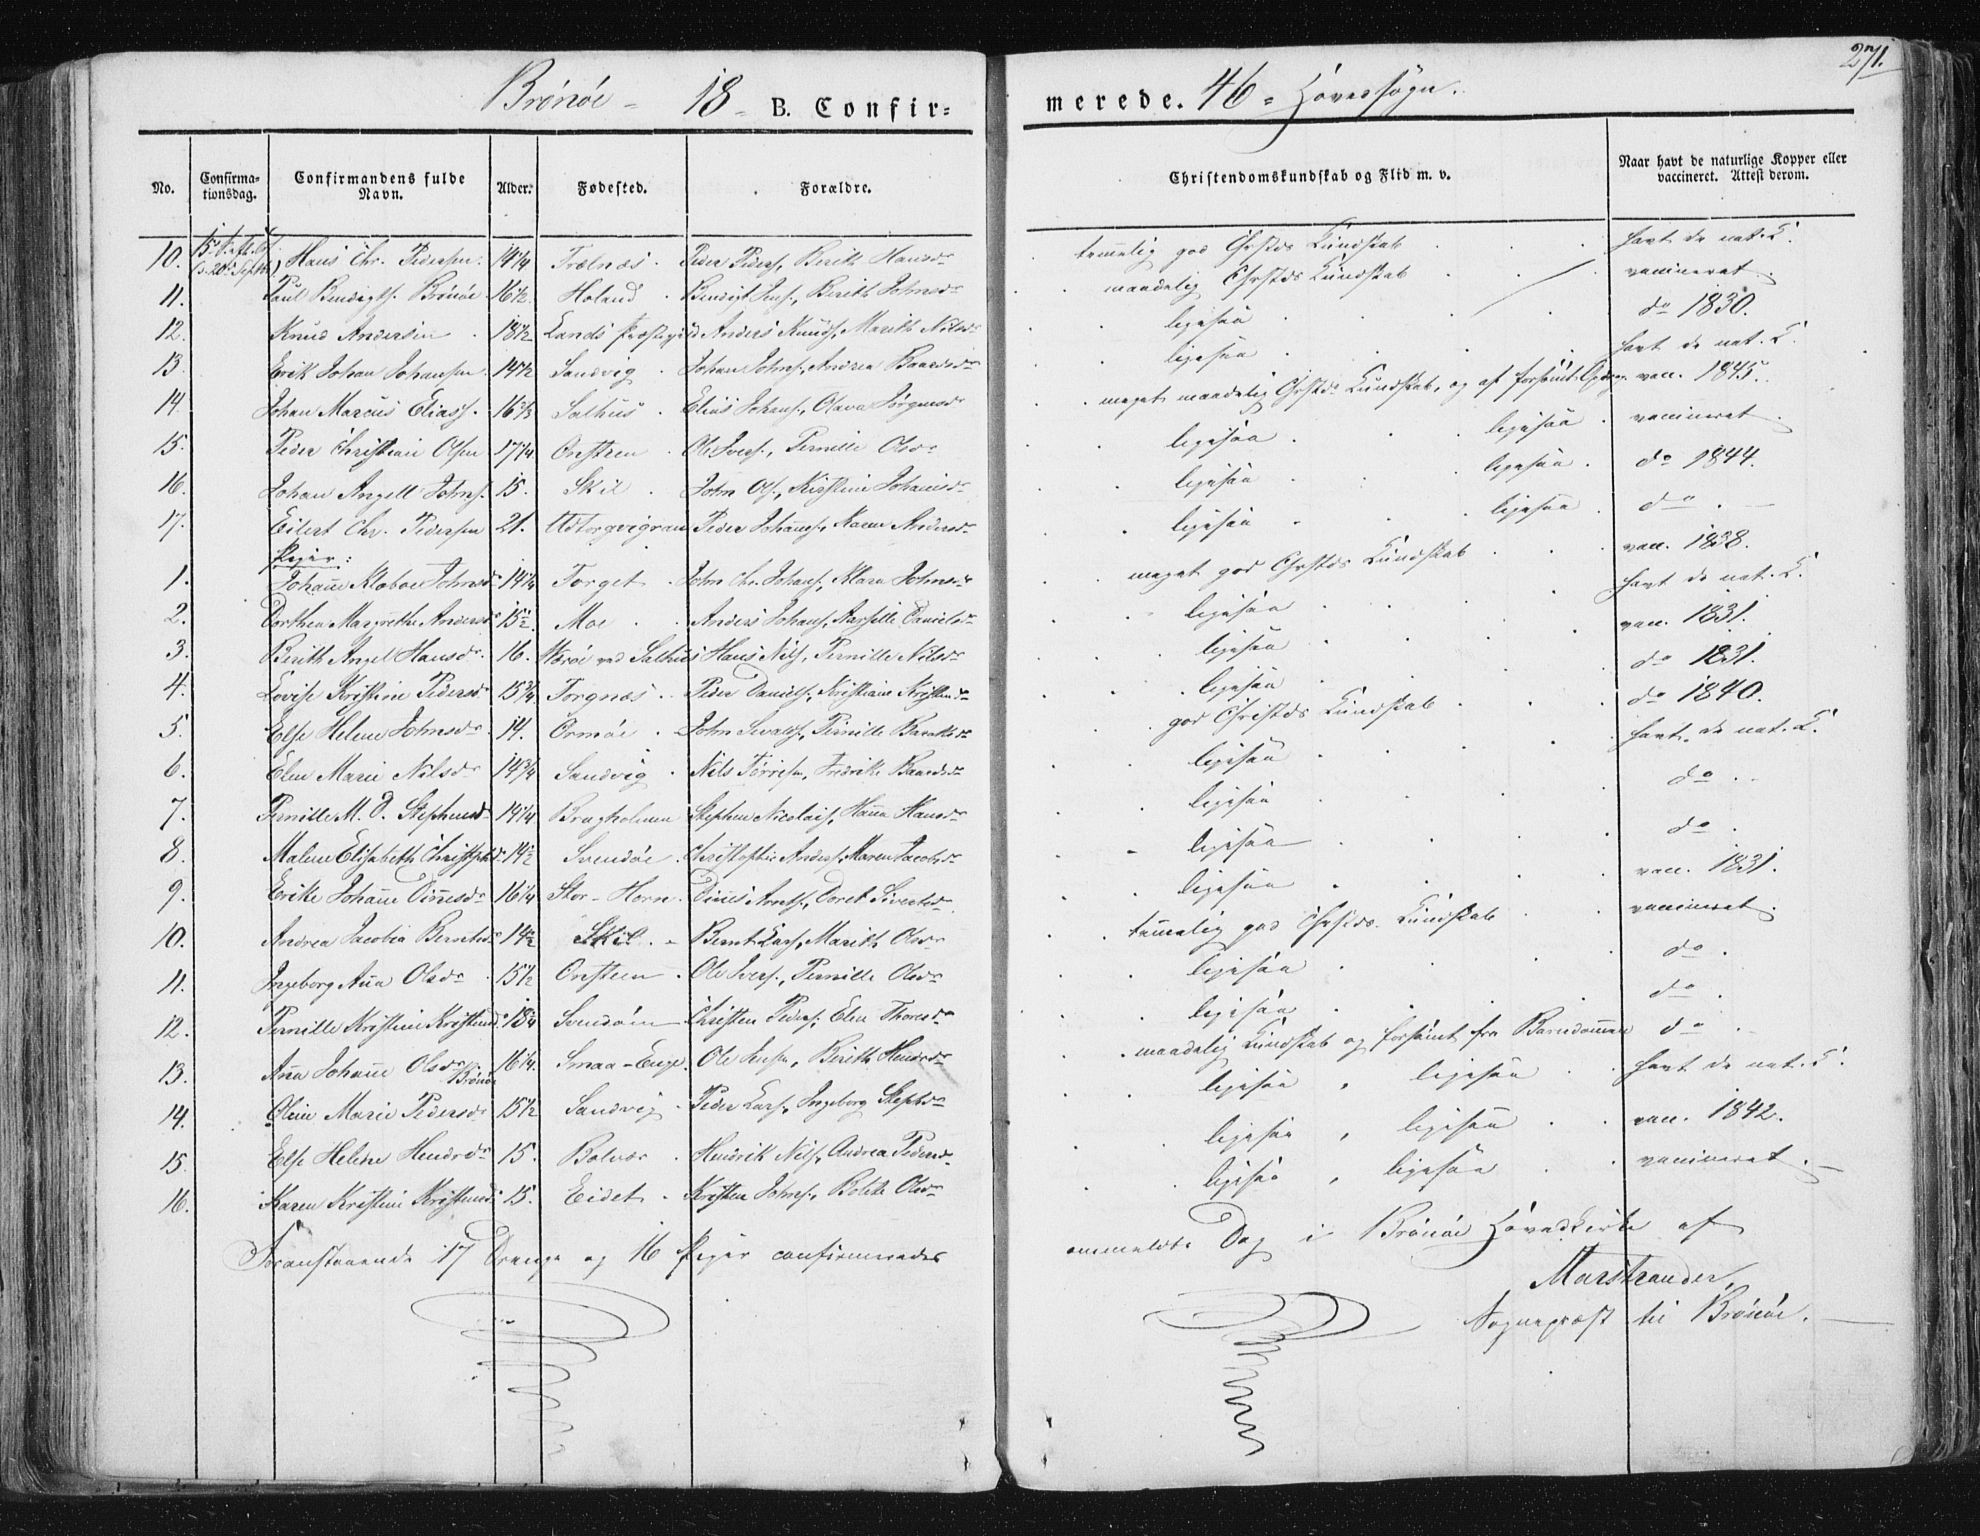 271.
Brönöe - 18 - B. Confir=
merede. 46 = Hovedsogn.
No. Confirma-tionsdag. Confirmandens fulde Navn. Alder. Fødested. Forældre.
Christendomskundskab og Flid m. v. Naar havt de naturlige Kopper eller vaccineret. Attest derom.
10. Hans Chr. Pedersen. 14 1/4 Trælnæs. Peder Peders., Berith Hansdr temmelig god Chrstds Kundskab havt de nat. K.
11. Paul Bendigts. Brönöe 16 1/2 Holand Bendigt Jens., Berith Johnsdr maadelig Chrstds Kundskab vaccineret.
12. Knud Andersen 18 1/2 Lands Præstegjeld Anders Knuds., Marith Nilsdr ligesaa do 1830.
13. Erik Johan Johansen 14 1/2 Sandvig Johan Johns., Andrea Baardsdr ligesaa havt de nat. K.
14. Johan Marcus Eliass. 16 Salhus Elias Johans., Olava Jörgensdr meget maadelig Chrstds Kundskab, og af forsömt vac. 1845.
15. Peder Christian Olsen 17 1/4 Onsteen Ole Ivers., Pernille Olsdr ligesaa ligesaa vaccineret
16. Johan Angell Johns. 15. Skil John Ols., Kirstine Johansdr ligesaa ligesaa do 1844.
17. Eilert Chr. Pedersen 21. Peder Johans., Karen Andersdr ligesaa ligesaa do
Piger:
1. Johanne Klæboe Johnsdr 14 1/4 Torget John Chr. Johans., Klara Johnsdr meget god Chrstds Kundskab vac. 1838.
2. Dorthea Margrethe Andersdr 15 1/2 Moe Anders Johans., Daniels dr ligesaa havt de nat. K.
3. Berith Angel Hansdr. 16. Væröe ved Salhus Hans Nils., Pernille Nilsdr ligesaa vac. 1831.
4. Lovise Kristine Pedersdr 15 3/4 Torgnæs Peder Daniels., Kristiane Kristensdr ligesaa do 1831.
5. Else Helene Johnsdr 14. Ormöe John Sivals., Pernille god Christds Kundskab do 1840.
6. Elen Marie Nilsdr 14 3/4 Sandvig Nils Törrisen, Fredrike Baardsdr ligesaa havt de nat. K.
7. Pernille M. D. Stephensdr 14 1/4 Stephen Nicolais., Hanna Hansdr ligesaa do
8. Malene Elisabeth Christophdr 14 1/2 Svendöe Christopher Anders., Maren Jacobsdr ligesaa do
9. Erike Johanne Dinnesdr 16 1/4 Stor-Horn Dines Arnts., Doret Sivertsdr ligesaa vac. 1831.
10. Andrea Jacobia Berntsdr 14 1/2 Skil Bernt Lars., Marith Olsdr temmelig god Chrstds. Kundskab vaccineret.
11. Ingeborg Anna Olsdr 15 1/2 Onsteen Ole Ivers., Pernille Olsdr ligesaa do
12. Pernille Kristine Kristensdr Svendöen Christen Peders., Elen Thoresdr ligesaa do
13. Anna Johanne Olsdr Brönöe 16 1/4 Smaa-Enge Ole Jensen, Berith maadelig Kundskab og forsömt fra Barndommen do
14. Oline Marie Pedersdr 15 1/2 Sandvig Peder Lars., Ingeborg Stephdr ligesaa, ligesaa havt de nat. K.
15. Else Helene Hendrdr 15. Bolvær Hendrik Nils., Andrea Pedersdr ligesaa, ligesaa vac. 1842.
16. Karen Kristine Kristensdr 15. Eidet Kristen Johns., Bolete Olsdr ligesaa, ligesaa vaccineret.
Foranstaaende 17 Drenge og 16 Piger confirmeredes
ommeldte Dag i Brönöe Hovedkirke af
Marstrander,
Sognepræst til Brönöe.